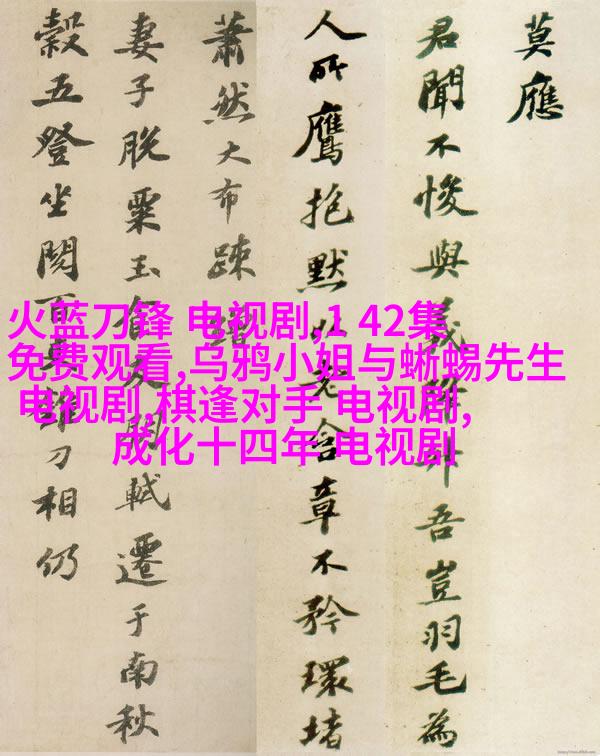 莫應
君聞不悛與義吾豈羽毛為
人所鷹抱默以老含章不矜環堵
蕭然大布踈
妻子脱粟玉食友軾遷于南秋
穀五登坐閱百錐刀相仍
火蓝刀锋 电视剧,1 42集
免费观看,乌鸦小姐与蜥蜴先生
电视剧,棋逢对手 电视剧,
成化十四年 电视剧